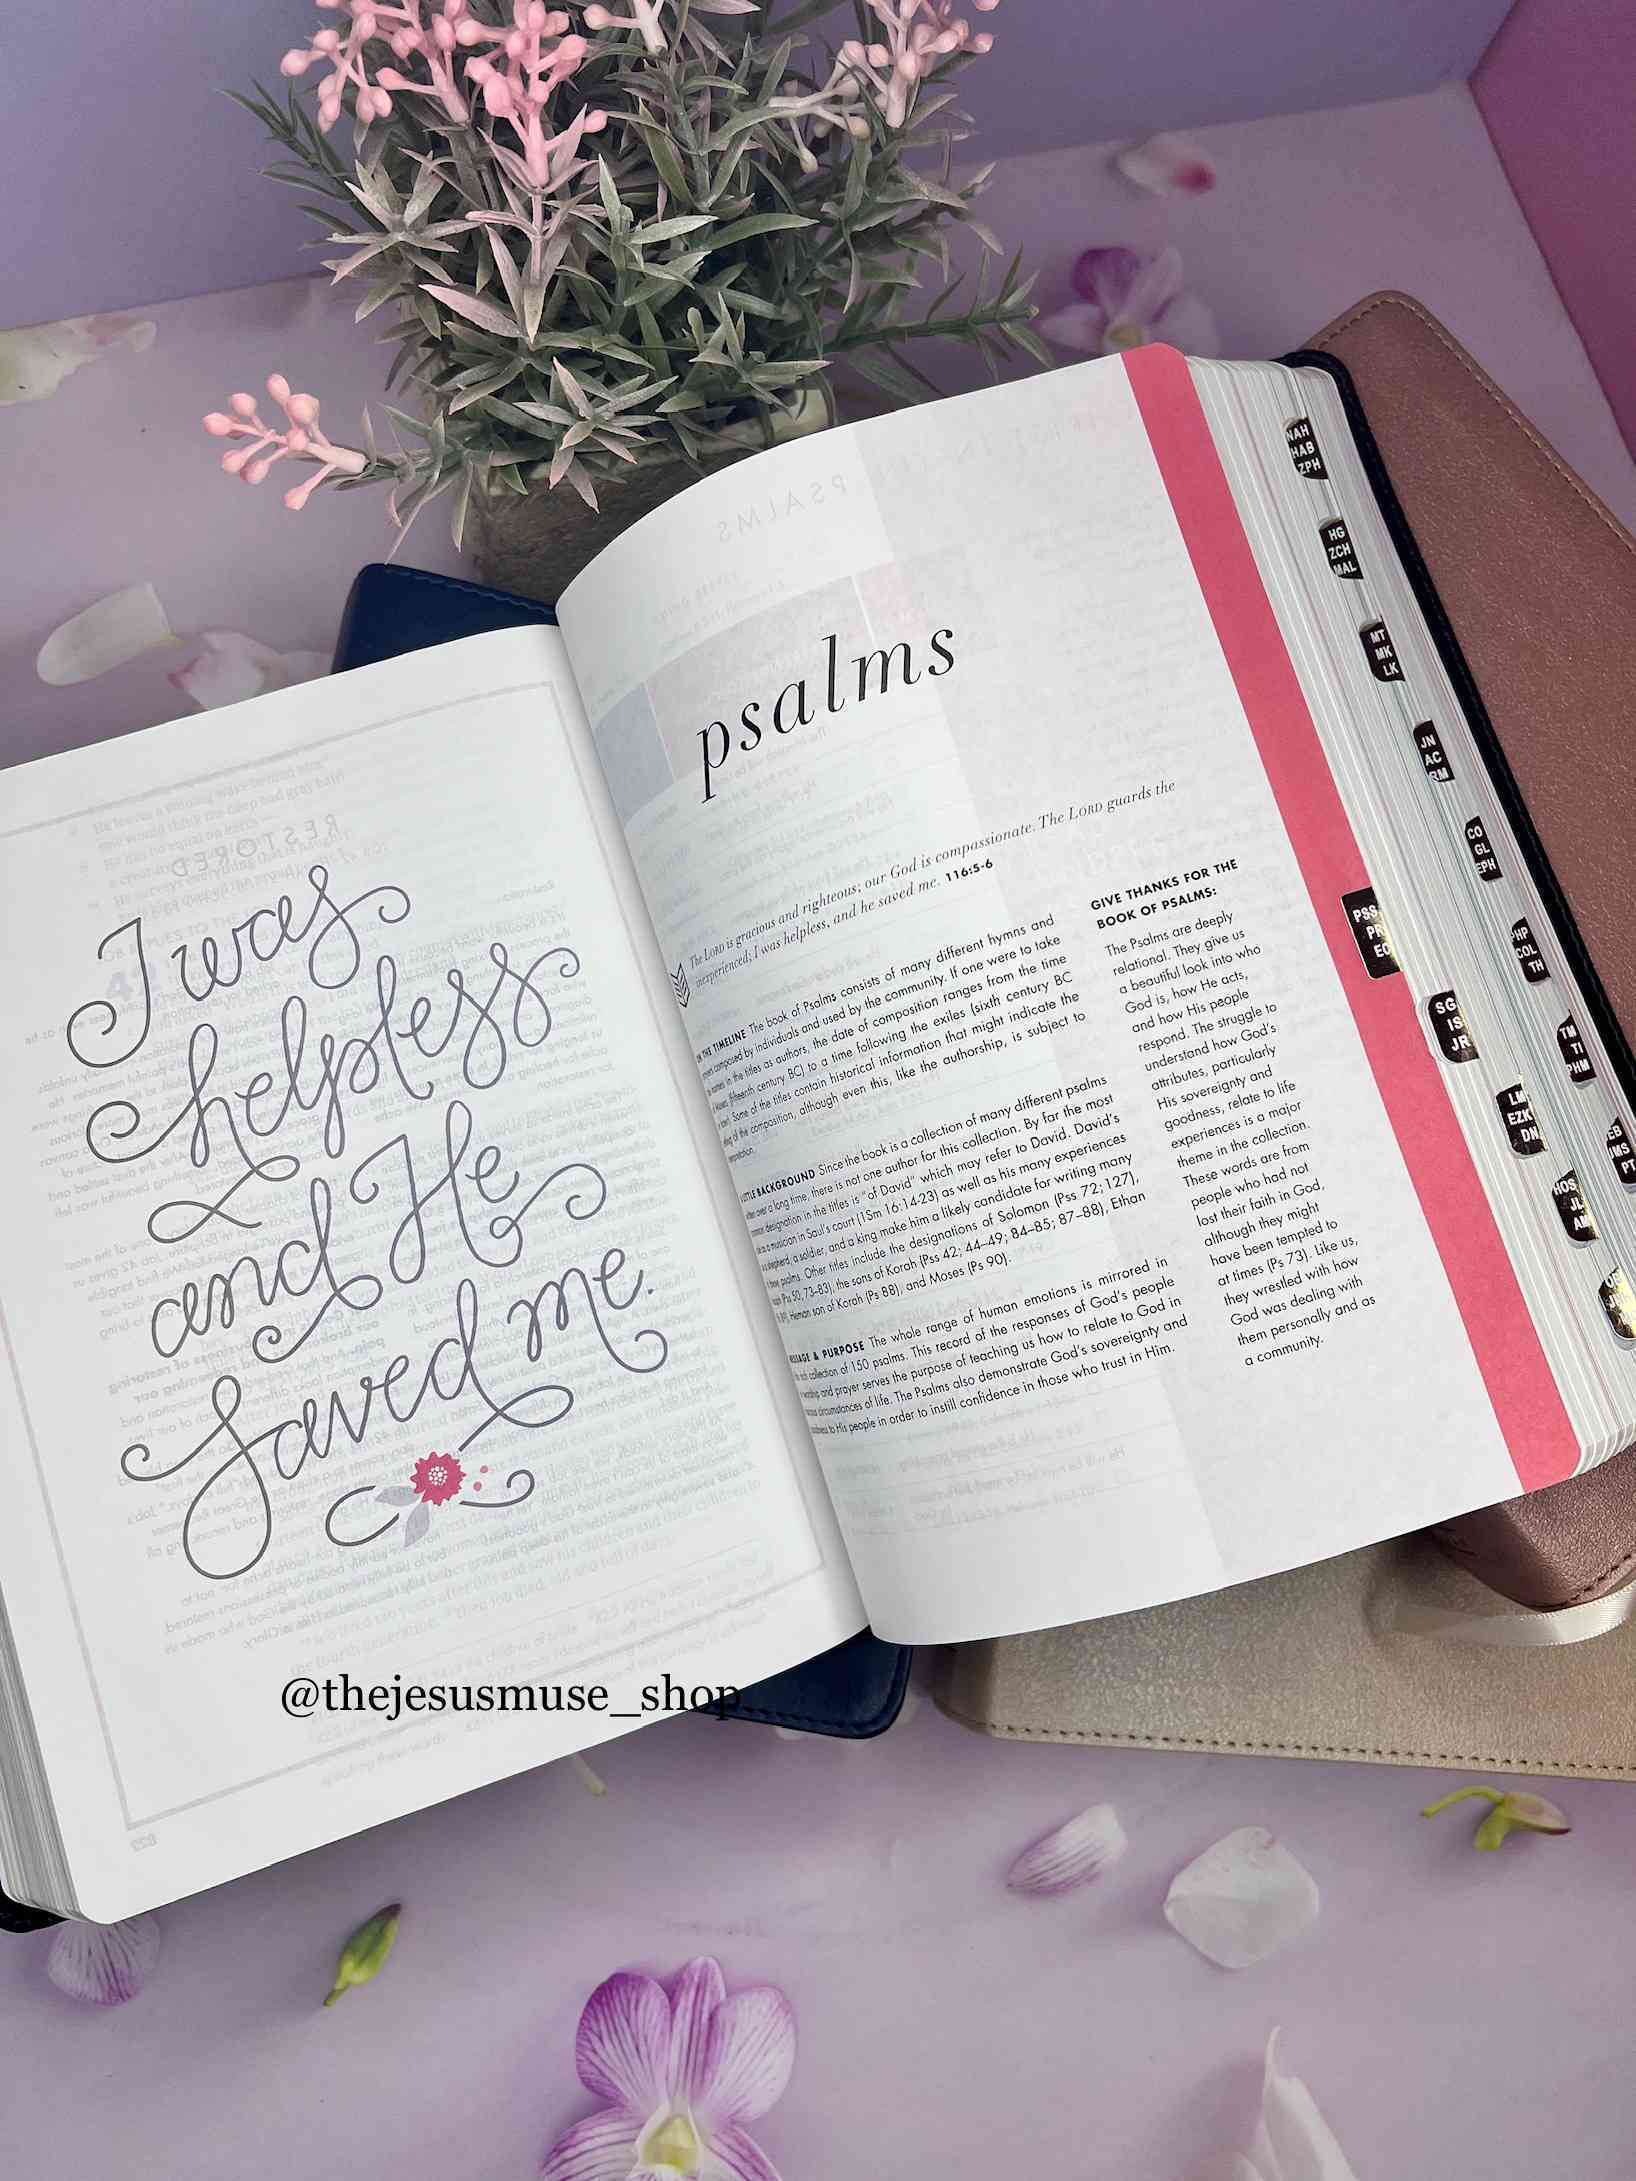 I was
helpless
and He
saved me.
@thejesusmuse_shop
psalms
The LORD is gracious and righteous; our God is compassionate. The LORD guards the
inexperienced; I was helpless, and he saved me. 116:5-6
THE TIMELINE The book of Psalms consists of many different hymns and
composed by individuals and used by the community. If one were to take
names in the titles as authors, the date of composition ranges from the time
Moses (fifteenth century BC) to a time following the exiles (sixth century BC
Some of the titles contain historical information that might indicate the
of the composition, although even this, like the authorship, is subject to
BACKGROUND Since the book is a collection of many different psalms
over a long time, there is not one author for this collection. By far the most
designation in the titles is "of David" which may refer to David. David's
as a musician in Saul's court (1Sm 16:14-23) as well as his many experiences
shepherd, a soldier, and a king make him a likely candidate for writing many
psalms. Other titles include the designations of Solomon (Pss 72; 127),
(Pss 50; 73–83), the sons of Korah (Pss 42; 44–49; 84–85; 87–88), Ethan
Heman son of Korah (Ps 88), and Moses (Ps 90).
& PURPOSE The whole range of human emotions is mirrored in
collection of 150 psalms. This record of the responses of God's people
worship and prayer serves the purpose of teaching us how to relate to God in
circumstances of life. The Psalms also demonstrate God's sovereignty and
to His people in order to instill confidence in those who trust in Him.
GIVE THANKS FOR THE
BOOK OF PSALMS:
The Psalms are deeply
relational. They give us
a beautiful look into who
God is, how He acts,
and how His people
respond. The struggle to
understand how God's
attributes, particularly
His sovereignty and
goodness, relate to life
experiences is a major
theme in the collection.
These words are from
people who had not
lost their faith in God,
although they might
have been tempted to
at times (Ps 73). Like us,
they wrestled with how
God was dealing with
them personally and as
a community.
NAH
HAB
ZPH
HG
ZCH
MAL
MT
MK
LK
JN
AC
RM
CO
GL
EPH
PHP
COL
TH
TM
TI
PHM
PSS
PR
EC
SG
IS
JR
LM
EZK
DN
HOS
JL
AM